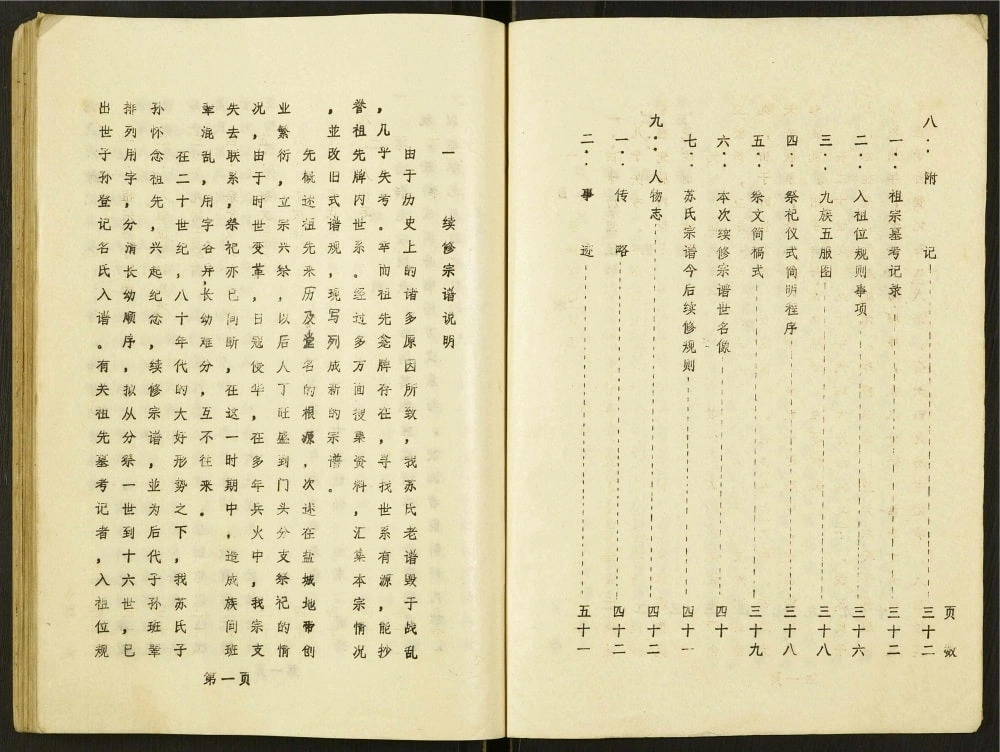 页数
八：附记------三十二
一：祖宗墓考记录------三十二
二：入祖位规则事项------三十六
三：九族五服图------三十八
四：祭祀仪式简明程序------三十八
五：祭文简稿式------三十九
六：本次续修宗谱世名像------四十
七：苏氏宗谱今后续修规则------四十一
九：人物志------四十二
一：传略------四十二
二：事迹------五十一
一 续修宗谱说明
由于历史上的诸多原因所致，我苏氏老谱毁于战乱
，几乎失考。幸而祖先龛牌存在，寻找世系有源，能抄
誊祖先牌内世系。经过多方面搜集资料，汇集本宗情况
，並改旧式谱规，现写列成新的宗谱。
先概述祖先来历及堂名的根源，次述在盐城地带创
业繁衍，立宗六祭，以后人丁旺盛到门头分支祭祀的情
况，由于时世变革，日寇侵华，在多年兵火中，我宗支
失去联系，祭祀亦已间断，在这一时期中，造成族间班
辈混乱，用字各异，长幼难分，互不往来。
在二十世纪，八十年代的大好形势之下，我苏氏子
孙怀念祖先，兴起纪念，续修宗谱，並为后代子孙班辈
排列用字，分清长幼顺序，拟从分祭一世到十六世，已
出世子孙登记名氏入谱。有关祖先墓考记者，入祖位规
第一页